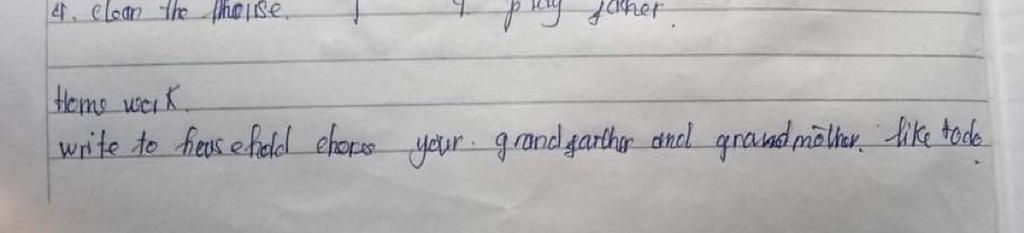 4. clean the phouse. 4 play father.
Home work.
write to household chores your grandgarther and grandmother. like todo.